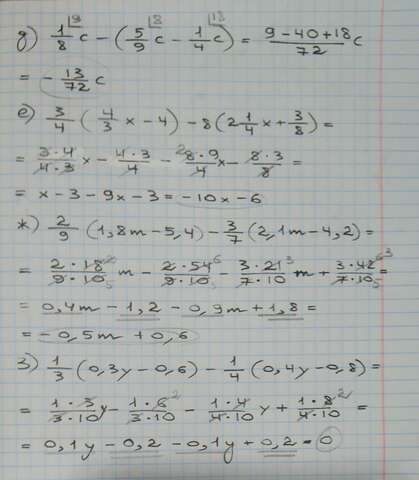 д) 1/8 c - (5/9 c - 1/4 c) = (9 - 40 + 18)/72 c
= - 13/72 c
е) 3/4 (4/3 x - 4) - 8(2 1/4 x + 3/8) =
= 3·4/4·3 x - 4·3/4 - 8·9/4 x - 8·3/8 =
= x - 3 - 9x - 3 = -10x - 6
ж) 2/9 (1,8m - 5,4) - 3/7 (2,1m - 4,2) =
= 2·18/9·10 m - 2·54/9·10 - 3·21/7·10 m + 3·42/7·10 =
= 0,4m - 1,2 - 0,9m + 1,8 =
= - 0,5m + 0,6
з) 1/3 (0,3y - 0,6) - 1/4 (0,4y - 0,8) =
= 1·3/3·10 y - 1·6/3·10 - 1·4/4·10 y + 1·8/4·10 =
= 0,1y - 0,2 - 0,1y + 0,2 = 0